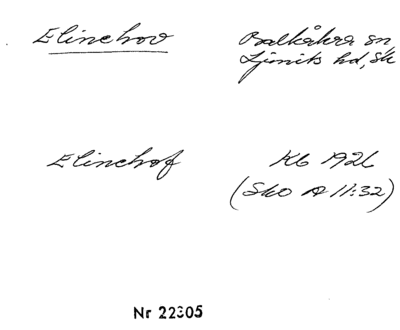 Elinehov
Balkåkra sn,
Ljunits hd, Sk
Elinehof
Kb 1926
(Sko A 11:32)
Nr 22305